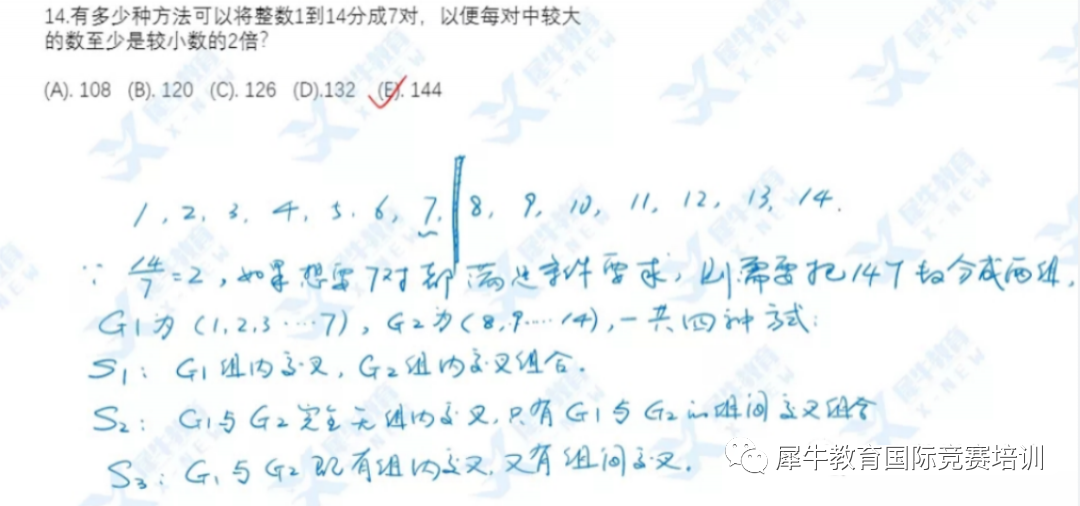 14.有多少种方法可以将整数1到14分成7对，以便每对中较大
的数至少是较小数的2倍?
(A). 108 (B). 120 (C). 126 (D).132 (E). 144
1, 2, 3, 4, 5, 6, 7, 8, 9, 10, 11, 12, 13, 14.
∵ 14/7=2, 如果想要7对都满足条件要求, 则需要把14个数分成两组,
G1为(1,2,3····7), G2为(8,9····14), 一共四种方式:
S1: G1组内交叉, G2组内交叉组合.
S2: G1与G2完全无组内交叉, 只有G1与G2的组间交叉组合
S3: G1与G2既有组内交叉, 又有组间交叉.
犀牛教育国际竞赛培训
犀牛教育
X-NEW